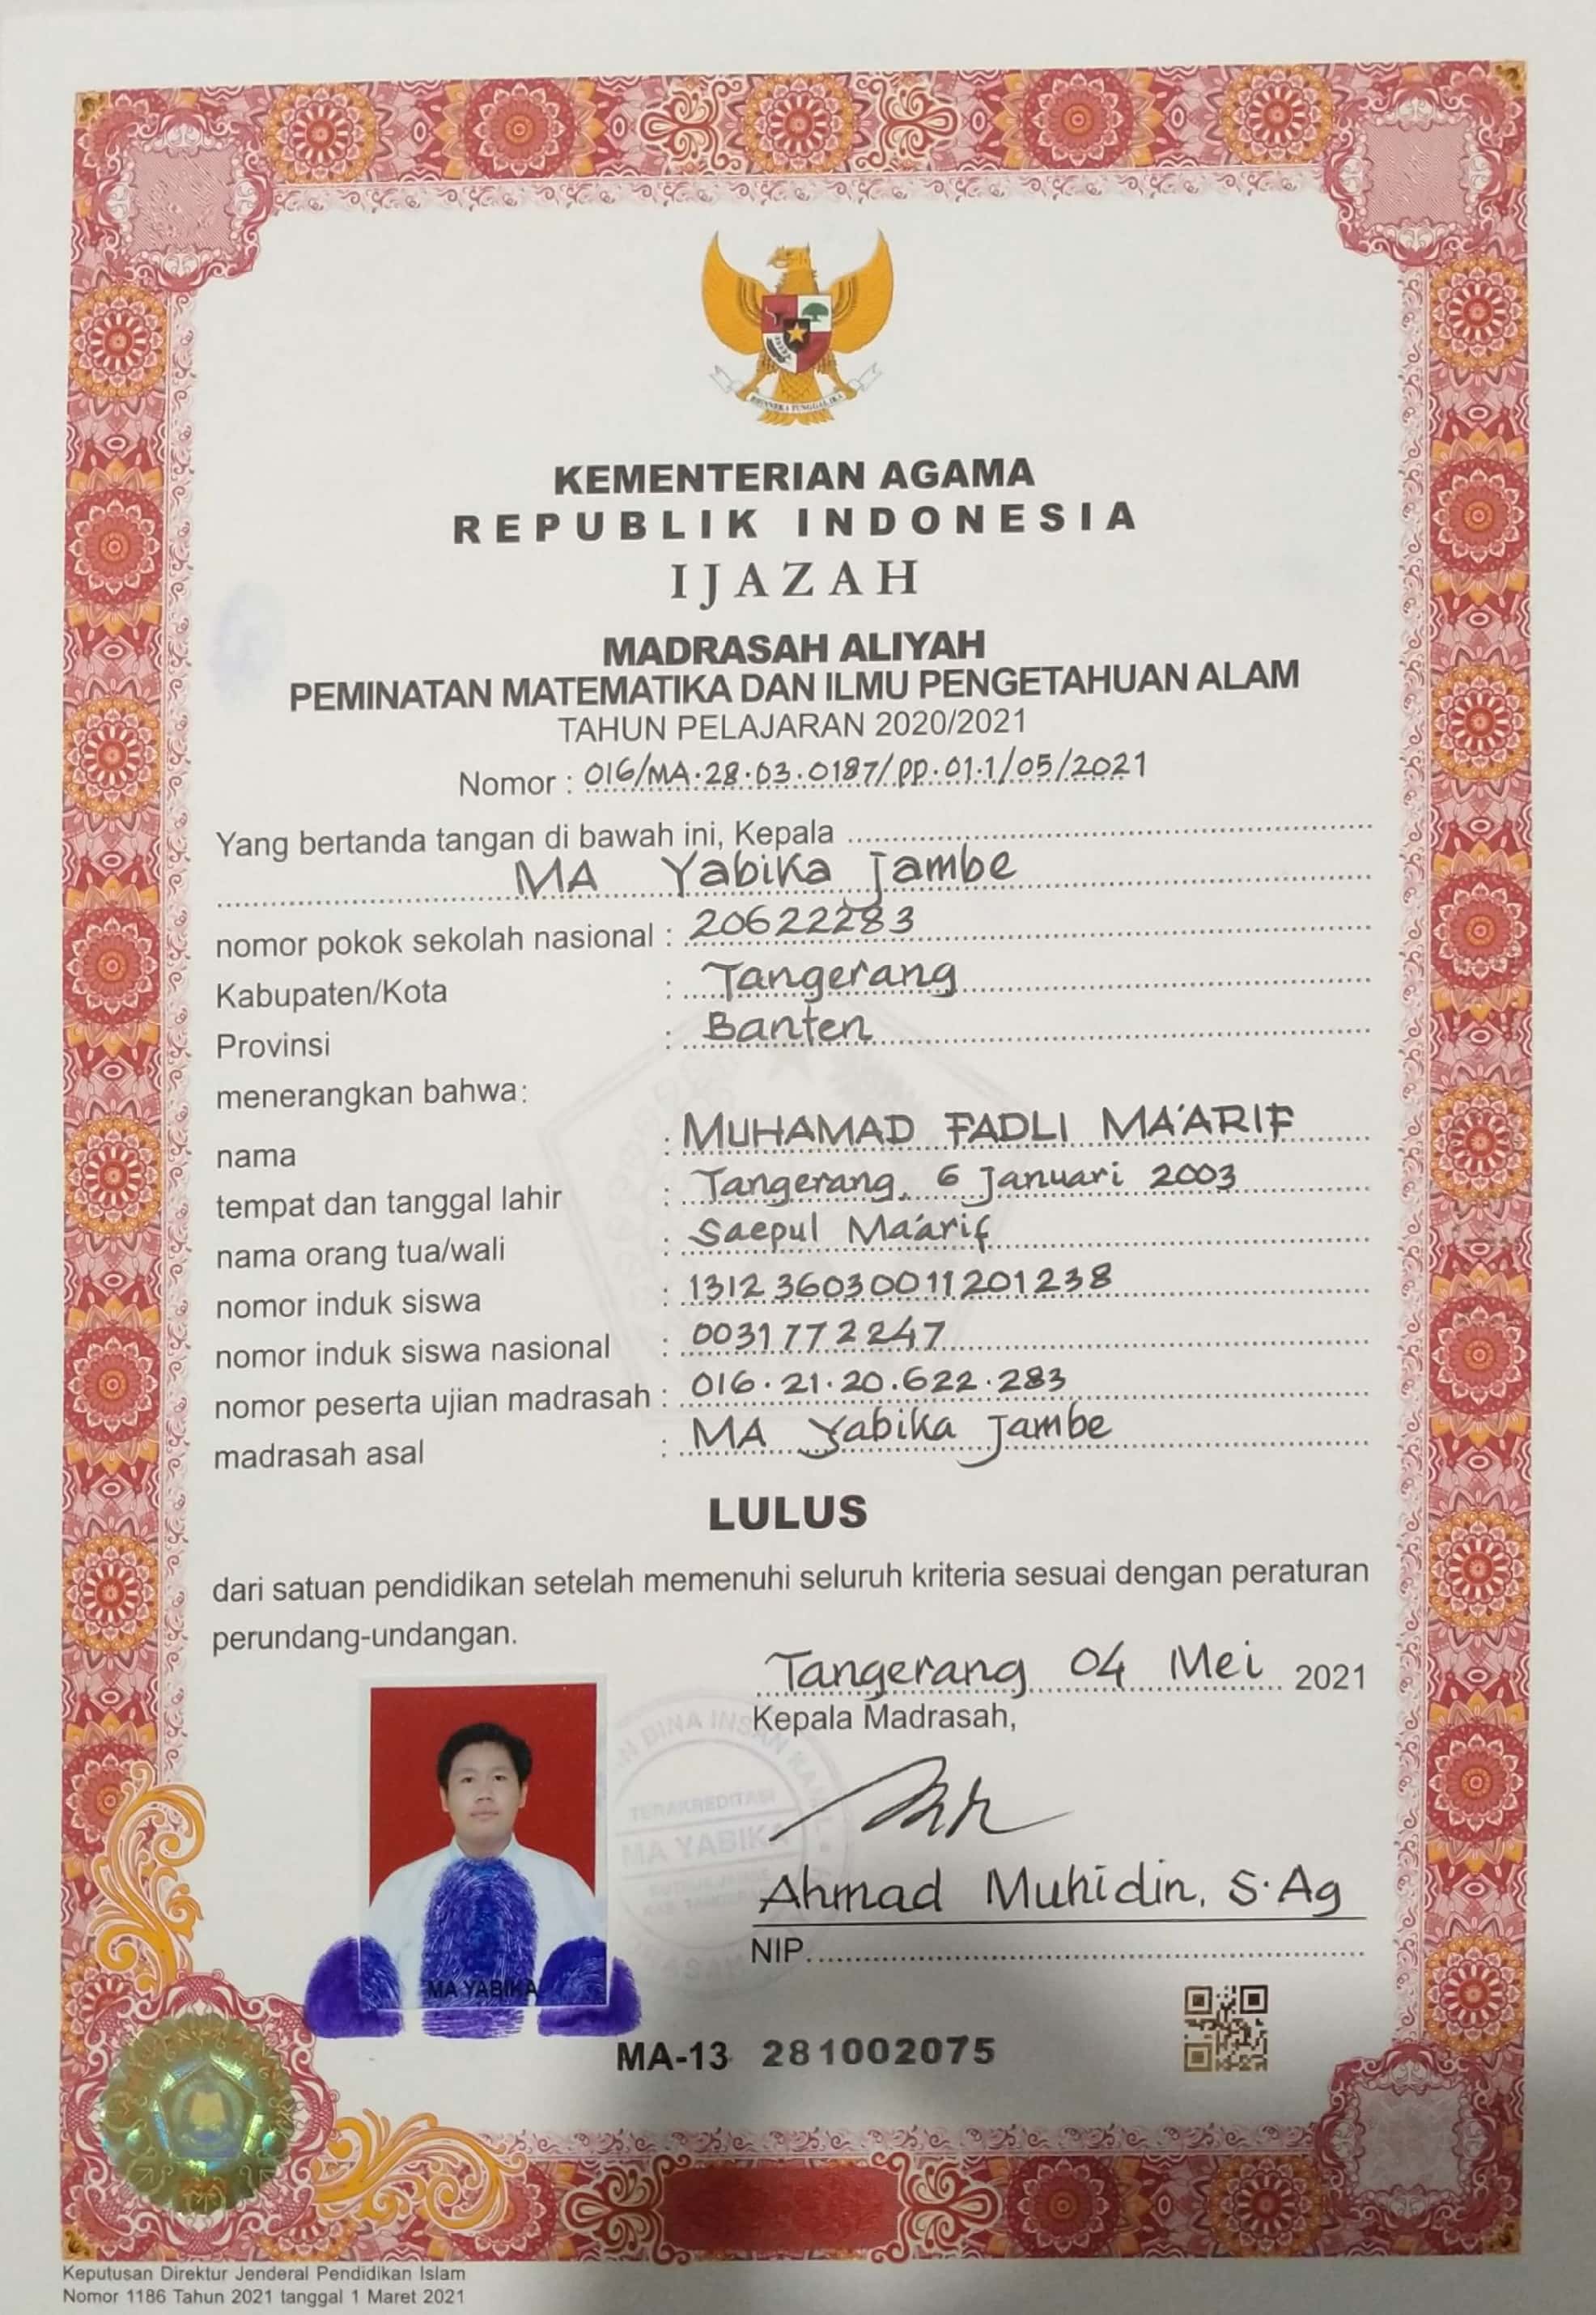 BHINNEKA TUNGGAL IKA
KEMENTERIAN AGAMA
REPUBLIK INDONESIA
IJAZAH
MADRASAH ALIYAH
PEMINATAN MATEMATIKA DAN ILMU PENGETAHUAN ALAM
TAHUN PELAJARAN 2020/2021
Nomor : 016/MA.28.03.0187/PP.01.1/05/2021
Yang bertanda tangan di bawah ini, Kepala
MA Yabika Jambe
nomor pokok sekolah nasional : 20622283
Kabupaten/Kota : Tangerang
Provinsi : Banten
menerangkan bahwa:
nama : MUHAMAD FADLI MA'ARIF
tempat dan tanggal lahir : Tangerang, 6 Januari 2003
nama orang tua/wali : Saepul Ma'arif
nomor induk siswa : 131236030011201238
nomor induk siswa nasional : 0031772247
nomor peserta ujian madrasah : 016.21.20.622.283
madrasah asal : MA Yabika Jambe
LULUS
dari satuan pendidikan setelah memenuhi seluruh kriteria sesuai dengan peraturan
perundang-undangan.
Tangerang 04 Mei 2021
Kepala Madrasah,
BINA INSAN
TERAKREDITASI
MA YABIKA
Ahmad Muhidin, S.Ag
NIP.
MA YABIKA
MA-13 281002075
Keputusan Direktur Jenderal Pendidikan Islam
Nomor 1186 Tahun 2021 tanggal 1 Maret 2021